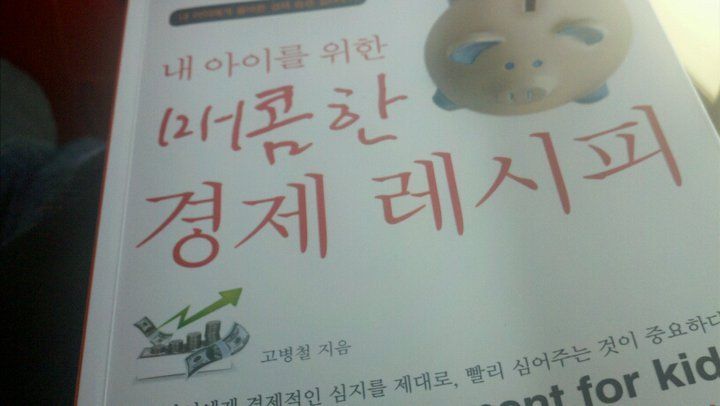 내 아이를 위한
매콤한
경제 레시피
고병철 지음
경제적인 심지를 제대로, 빨리 심어주는 것이 중요하다
for kid